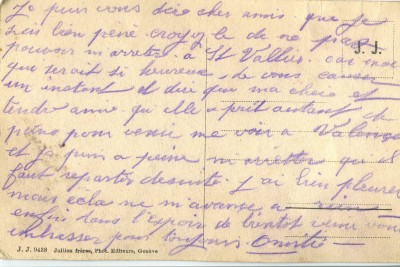 Je puis vous dire cher amis. que je
suis bien peiné croyez le de ne pas
pouvoir m'arreter. à St Vallier. car moi
J. J.
que serait si heureux, de vous causer
un instant et dire que ma chere et
tendre amie qu'elle a prit autant de
peine pour venir me voir a Valence
et j'ai pum a peine m'arretter qu'il
faut repartir desuite. J'ai bien pleurer
mais cela ne m'avance a rien
enfin dans l'espoir de bientot venir vous
embrasser pour toujours.
J. J. 9428 Jullien frères, Phot. Editeurs, Genève